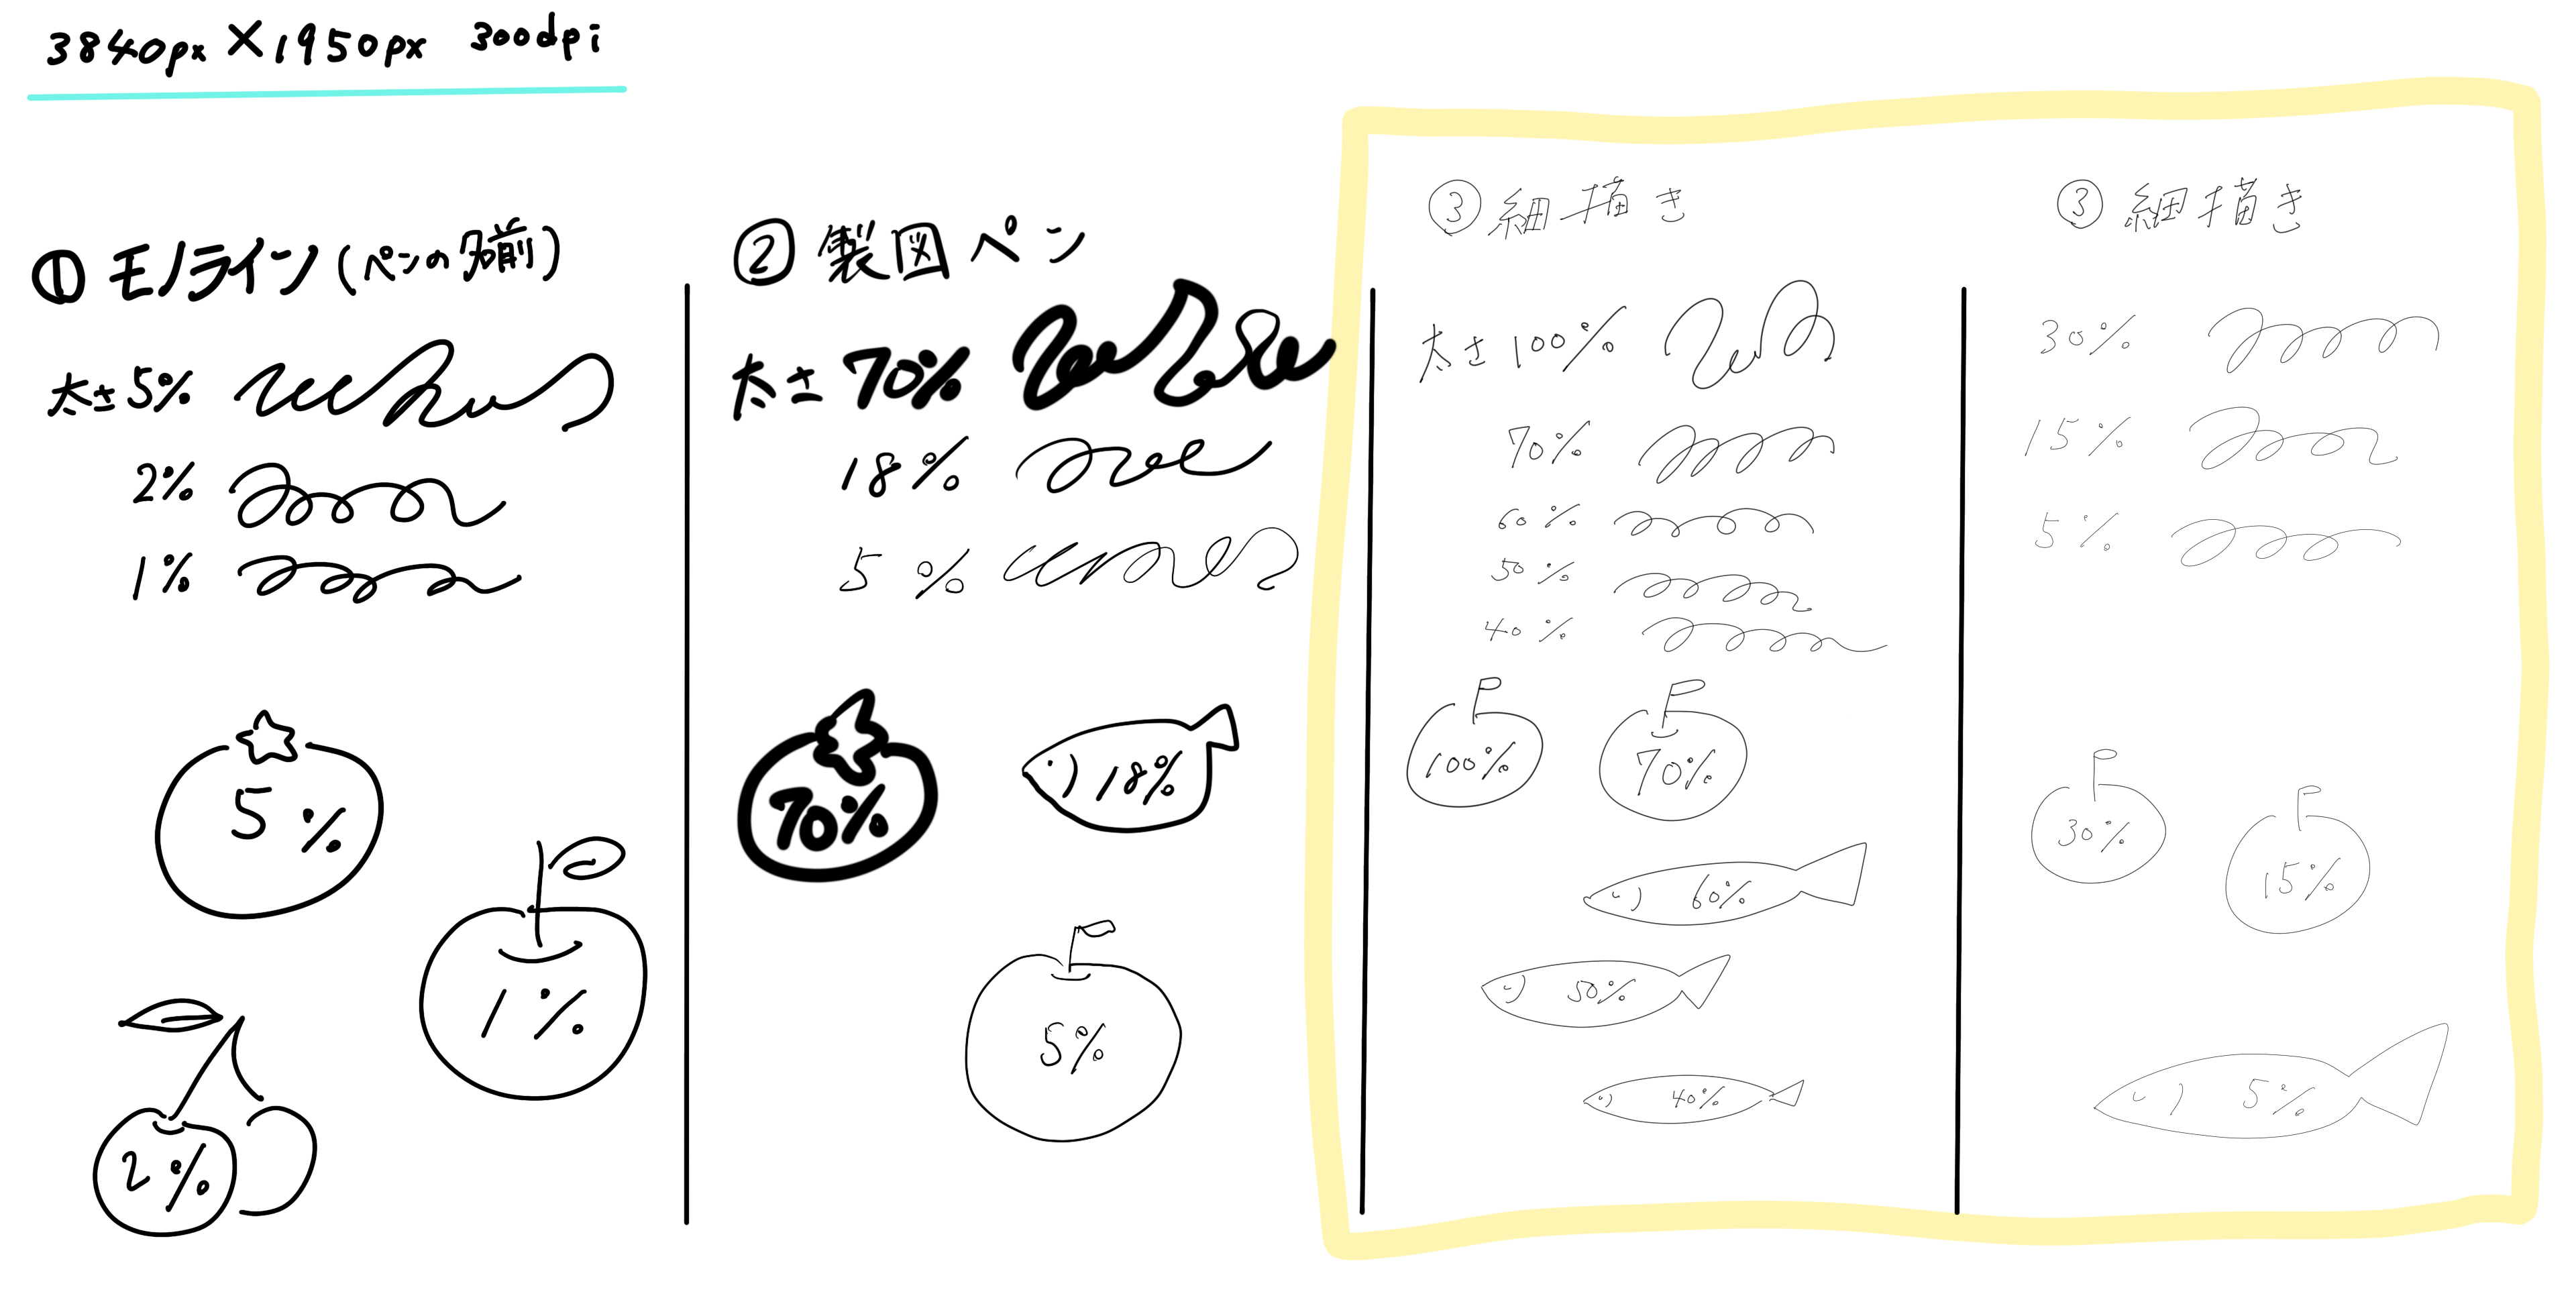 3840px×1950px 300dpi
①モノライン(ペンの名前)
太さ5%
2%
1%
5%
1%
2%
②製図ペン
太さ70%
18%
5%
70%
18%
5%
③細描き
太さ100%
70%
60%
50%
40%
100%
70%
60%
50%
40%
③細描き
30%
15%
5%
30%
15%
5%